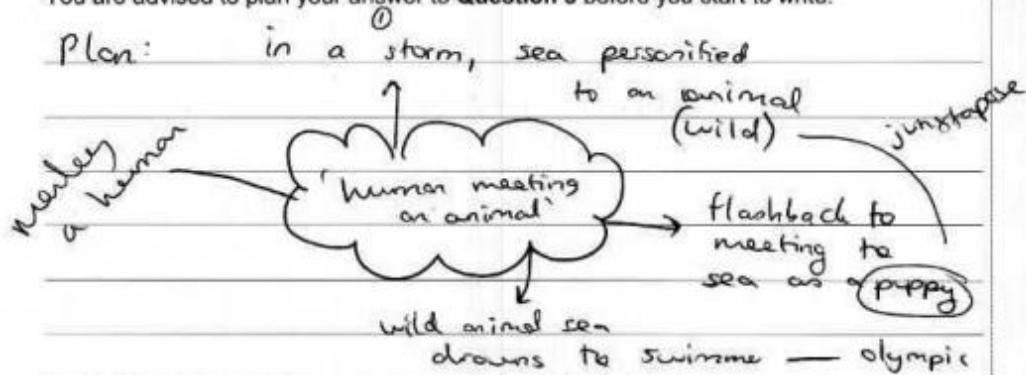 You are advised to plan your answer to Question 5 before you start to write.
Plan: in a storm, sea personified
①
to an animal
(wild)
juxtapose
merley
a human
'human meeting
an animal'
flashback to
meeting to
sea as a puppy
wild animal sea
drowns to swimme — olympic